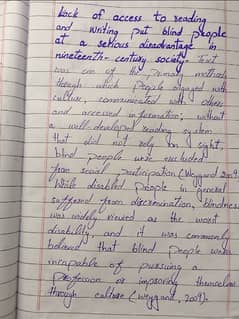 Lack of access to reading
and writing put blind people
at a serious disadvantage in
nineteenth-century society. Text
was one of the primary methods
through which people engaged with
culture, communicated with others
and accessed information; without
a well-developed reading system
that did not rely on sight,
blind people were excluded
from social participation (Weygand 2009).
While disabled people in general
suffered from discrimination, blindness
was widely viewed as the worst
disability, and it was commonly
believed that blind people were
incapable of pursuing a
profession or improving themselves
through culture (Weygand, 2009).